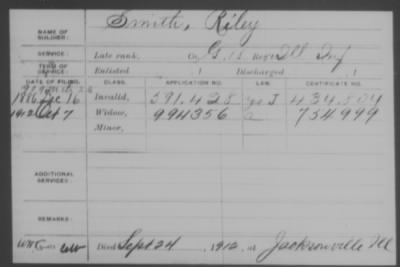 Smith, Riley
NAME OF SOLDIER:
SERVICE: Late rank, Co. G, 15 Reg't Ill Inf
TERM OF SERVICE: Enlisted , 1 Discharged , 1
DATE OF FILING. CLASS. APPLICATION NO. LAW. CERTIFICATE NO.
1886 Dec 16 Invalid, 591.428 434.504
1912 Oct 7 Widow, 994356 754999
Minor,
ADDITIONAL SERVICES:
REMARKS:
Died Sept 24, 1912, at Jacksonville Ill